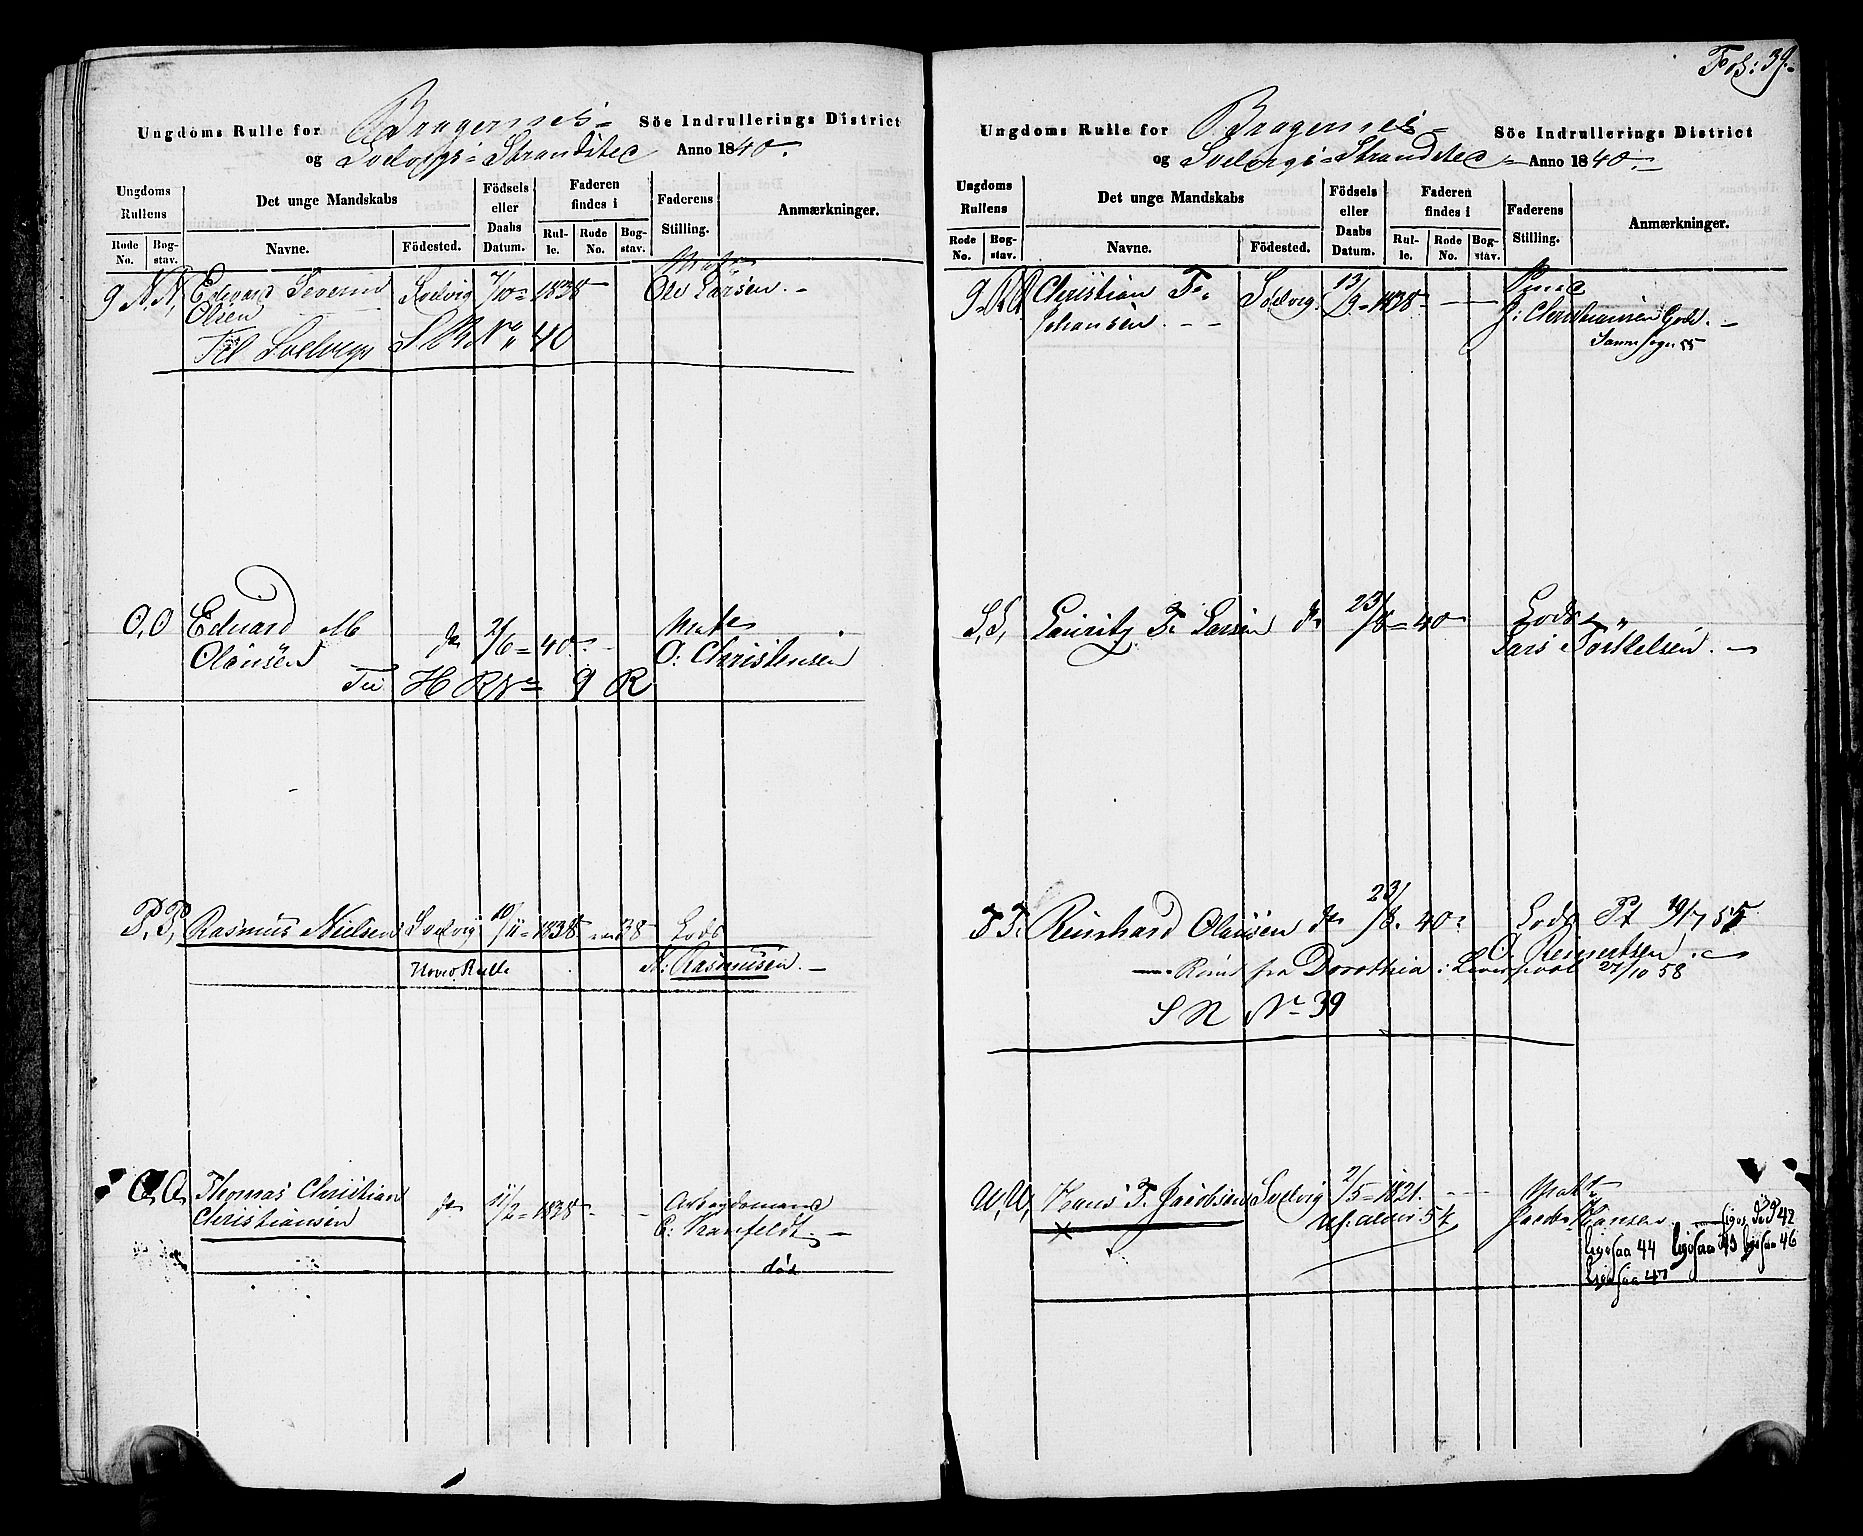 Fol: 39.
Ungdoms Rulle for Bragernes Söe Indrullerings District
og Svelvigs Strandsted Anno 1840.
Ungdoms Rullens
Det unge Mandskabs
Födsels eller Daabs Datum.
Faderen findes i
Faderens Stilling.
Anmærkninger.
Rode No. Bogstav. Navne. Födested. Rulle. Rode No. Bogstav.
9 N N, Edvard Severin Svelvig 7/10 = 1838 Matr
Olsen Ole Larsen. -
Til Svelvigs S R No 40
O, O Eduard M Matr
Olausen do 2/6 = 40 O: Christensen
Til H R No 9 R
P. P, Rasmus Nielsen Svelvig 10/11 = 1838 38 Lods
Hoved Rulle N: Rasmussen. -
Q, Q, Thomas Christian do 11/2 = 1838 Arbeydsmand
Christiansen C: Kranfeldt -
död
Ungdoms Rulle for Bragernes Söe Indrullerings District
og Svelvigs Strandsted Anno 1840.
Ungdoms Rullens
Det unge Mandskabs
Födsels eller Daabs Datum.
Faderen findes i
Faderens Stilling.
Anmærkninger.
Rode No. Bogstav. Navne. Födested. Rulle. Rode No. Bogstav.
9 R R Christian F. Svelvig. 13/9 = 1838
Johansen. - - J: Christiansen
S, S, Lauritz F. Larsen do 23/8 = 40 Lods
Lars Torkelsen. -
T T. Reinhard Olausen do 23/8. 40. Lods Pt 19/7 55
O. Reinertsen.
Römt fra Dorothia i Liverpool 27/10 58
S R No 39
U, U, Hans F. Jacobsen Svelvig 2/5 = 1821. Matr
× Uf. alder 54 Jacob Hansen ligesaa 42
ligesaa 44 ligesaa 45 ligesaa 46
ligesaa 47